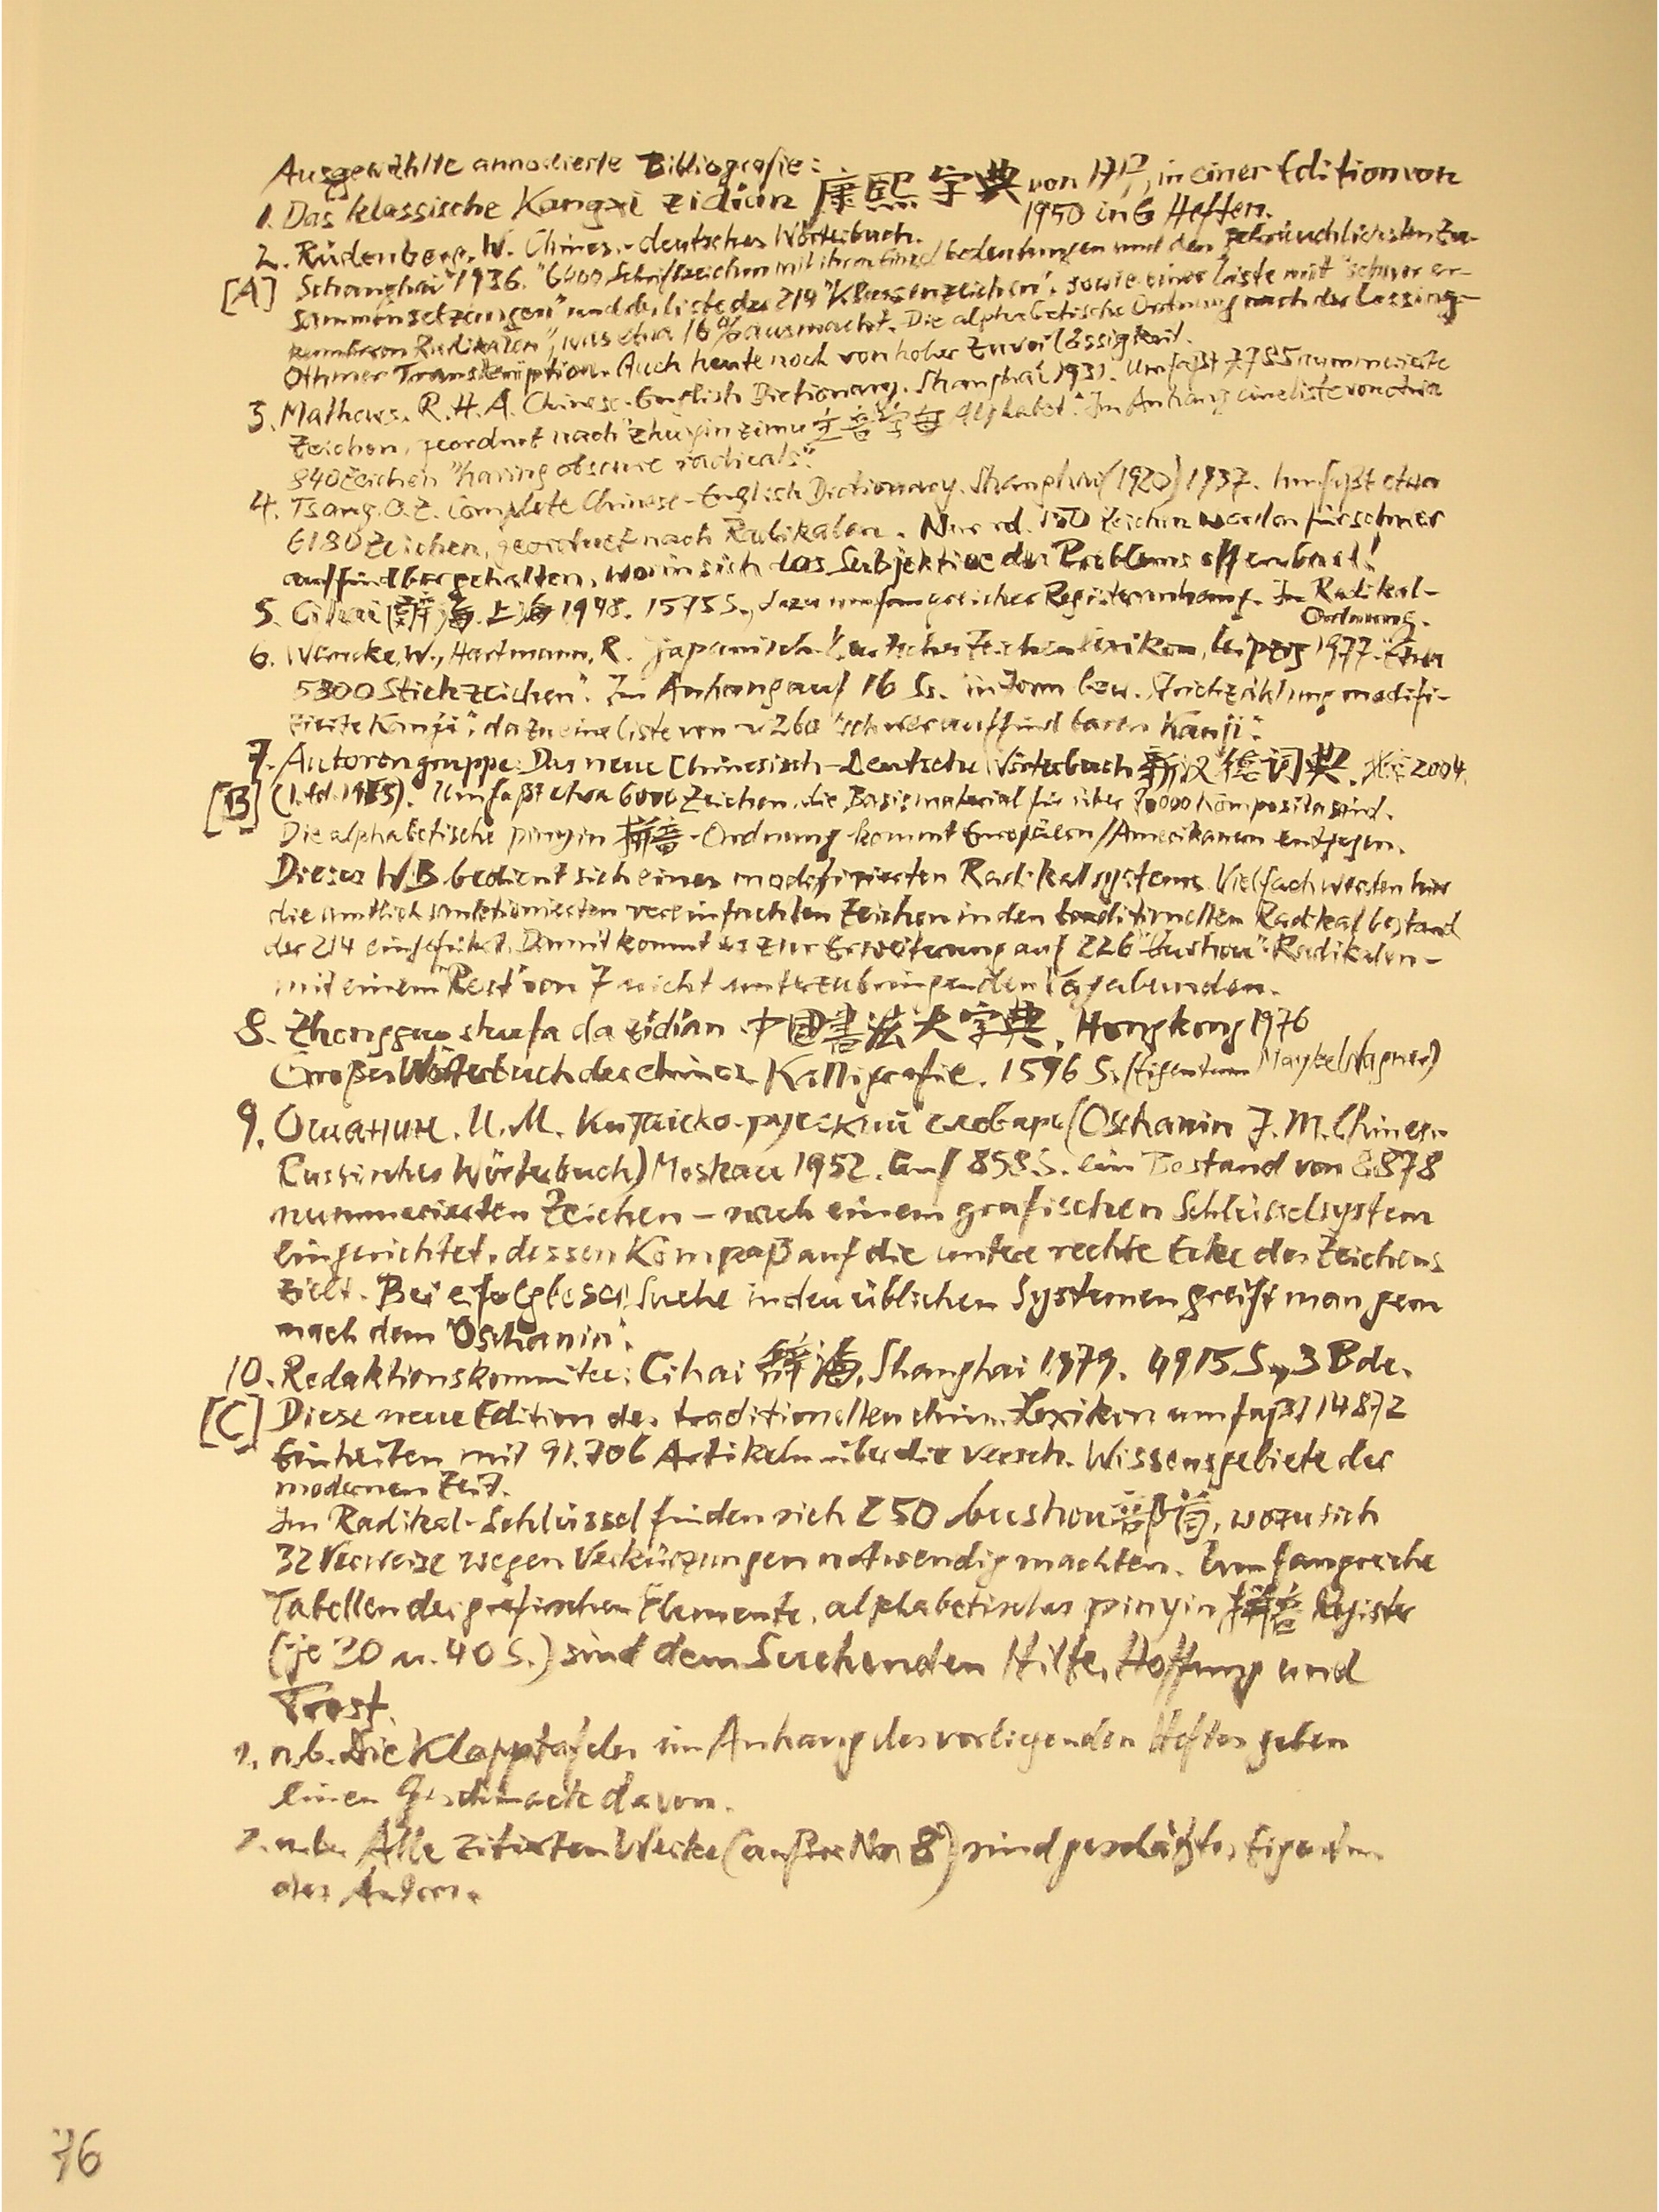 Ausgewählte annotierte Bibliografie:
1. Das klassische Kangxi zidian 康熙字典 von 1717, in einer Edition von
1950 in 6 Heften.
2. Rüdenberg, W. Chines.-deutsches Wörterbuch.
[A] Schanghai 1936. "6400 Schriftzeichen mit ihren Einzelbedeutungen und den gebräuchlichsten Zu-
sammensetzungen" und die Liste der 214 "Klassenzeichen", sowie einer Liste mit "schwer er-
kennbaren Radikalen", was etwa 16% ausmacht. Die alphabetische Ordnung nach der Lessing-
Othmer Transkription. Auch heute noch von hoher Zuverlässigkeit.
3. Mathews, R.H. A Chinese-English Dictionary. Shanghai 1931. Umfaßt 7785 nummerierte
Zeichen, geordnet nach "zhuyin zimu 主音字母 Alphabet". Im Anhang eine Liste von etwa
840 Zeichen "having obscure radicals".
4. Tsang, O.Z. Complete Chinese-English Dictionary. Shanghai (1920) 1937. Umfaßt etwa
6130 Zeichen, geordnet nach Radikalen. Nur rd. 150 Zeichen werden für schwer
auffindbar gehalten, worin sich das Subjektive des Problems offenbart!
5. Cihai (辭海. 上海 1948. 1575 S., dazu umfangreicher Registeranhang. In Radikal-
Ordnung.
6. Wernecke, W., Hartmann, R. Japanisch-Deutsches Zeichenlexikon, Leipzig 1977. "Etwa
5300 Stichzeichen". Im Anhang auf 16 Ss. "in Form bzw. Strichzählung modifi-
zierte Kanji", dazu eine Liste von ~ 260 "schwer auffindbaren Kanji".
7. Autorengruppe: Das neue Chinesisch-Deutsche Wörterbuch 新汉德词典. 北京 2004.
[B] (1. Ed. 1985). Umfaßt etwa 6000 Zeichen, die Basismaterial für über Komposita sind.
Die alphabetische pinyin 拼音-Ordnung kommt Europäern/Amerikanern entgegen.
Dieses W.B. bedient sich eines modifizierten Radikalsystems. Vielfach werden hier
die amtlich sanktionierten vereinfachten Zeichen in den traditionellen Radikalbestand
der 214 eingeführt. Damit kommt es zur Erweiterung auf 226 "bushou" Radikalen –
mit einem "Rest" von 7 nicht unterzubringenden Vagabunden.
8. Zhongguo shufa da zidian 中國書法大字典. Hongkong 1976
Großes Wörterbuch der chines. Kalligrafie. 1596 S. (Eigentum Maykel Wagner)
9. Ошанин. И. М. Китайско-русский словарь (Oschanin J. M. Chines.-
russisches Wörterbuch) Moskau 1952. Auf 898 S. ein Bestand von 8878
nummerierten Zeichen – nach einem grafischen Schlüsselsystem
eingerichtet, dessen Kompaß auf die untere rechte Ecke des Zeichens
zielt. Bei erfolgloser Suche in den üblichen Systemen greift man gern
nach dem "Oschanin".
10. Redaktionskommitee: Cihai 辭海, Shanghai 1979. 4915 S., 3 Bde.
[C] Diese neue Edition des traditionellen chin. Lexikon umfaßt 14872
Einheiten mit 91.706 Artikeln über die versch. Wissensgebiete der
modernen Zeit.
Im Radikal-Schlüssel finden sich 250 bushou 部首, wozu sich
32 Verweise wegen Verkürzungen notwendig machten. Umfangreiche
Tabellen der grafischen Elemente, alphabetisches pinyin 拼音 Register
(je 30 u. 40 S.) sind dem Suchenden Hilfe, Hoffnung und
Trost.
1. n.b. Die Klapptafeln im Anhang des vorliegenden Heftes geben
einen Geschmack davon.
2. n.b. Alle zitierten Werke (außer No 8) sind geschätztes Eigentum
des Autors.
76